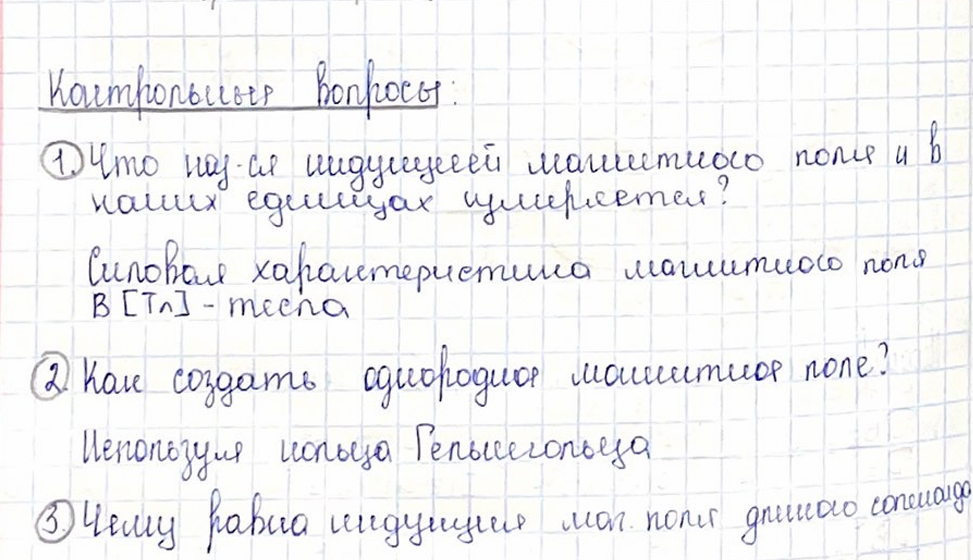 Контрольные вопросы:
1. Что наз-ся индукцией магнитного поля и в
каких единицах измеряется?
Силовая характеристика магнитного поля
В [Тл] - тесла
2. Как создать однородное магнитное поле?
Используя кольца Гельмгольца
3. Чему равна индукция маг. поля длинного соленоида